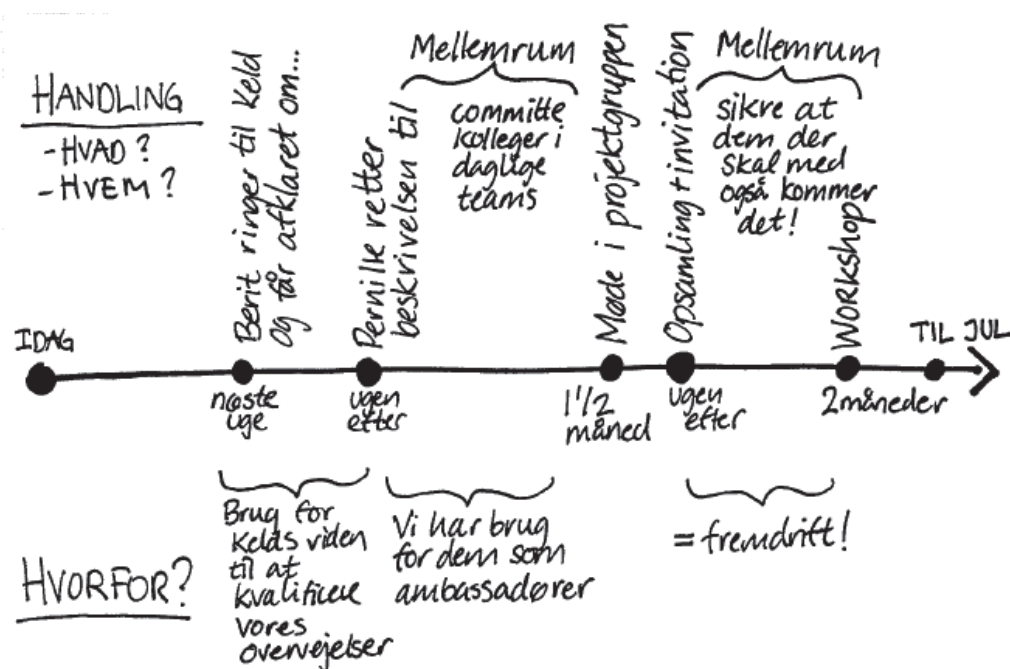 HANDLING
- HVAD?
- HVEM?
Berit ringer til Keld
og får afklaret om...
Pernille retter
beskrivelsen til
Mellemrum
committe
kolleger i
daglige
teams
Møde i projektgruppen
Opsamling + invitation
Mellemrum
sikre at
dem der
skal med
også kommer
det!
WORKSHOP
IDAG
TIL JUL
næste
uge
ugen
efter
1 1/2
måned
ugen
efter
2 måneder
HVORFOR?
Brug for
Kelds viden
til at
kvalificere
vores
overvejelser
Vi har brug
for dem som
ambassadører
= fremdrift!